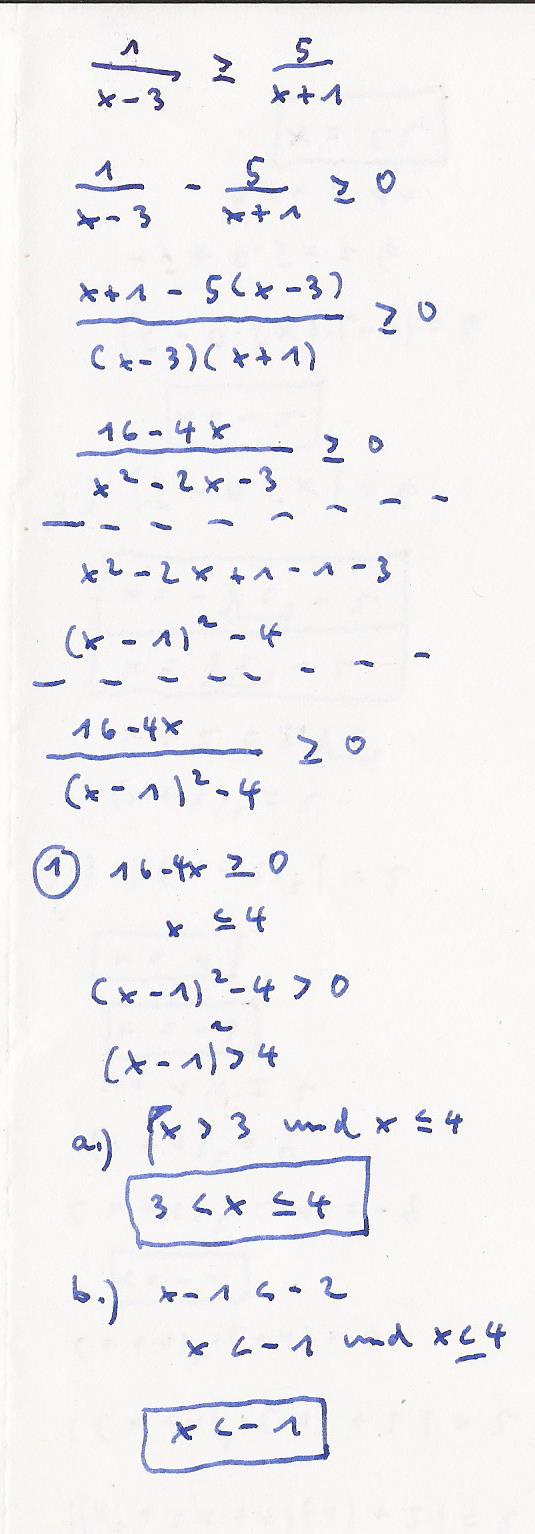 1/(x-3) ≥ 5/(x+1)
1/(x-3) - 5/(x+1) ≥ 0
(x+1 - 5(x-3))/((x-3)(x+1)) ≥ 0
(16-4x)/(x² - 2x - 3) ≥ 0
x² - 2x + 1 - 1 - 3
(x - 1)² - 4
(16-4x)/((x-1)² - 4) ≥ 0
① 16-4x ≥ 0
x ≤ 4
(x-1)² - 4 > 0
(x-1)² > 4
a.) x > 3 und x ≤ 4
3 < x ≤ 4
b.) x-1 < -2
x < -1 und x ≤ 4
x < -1